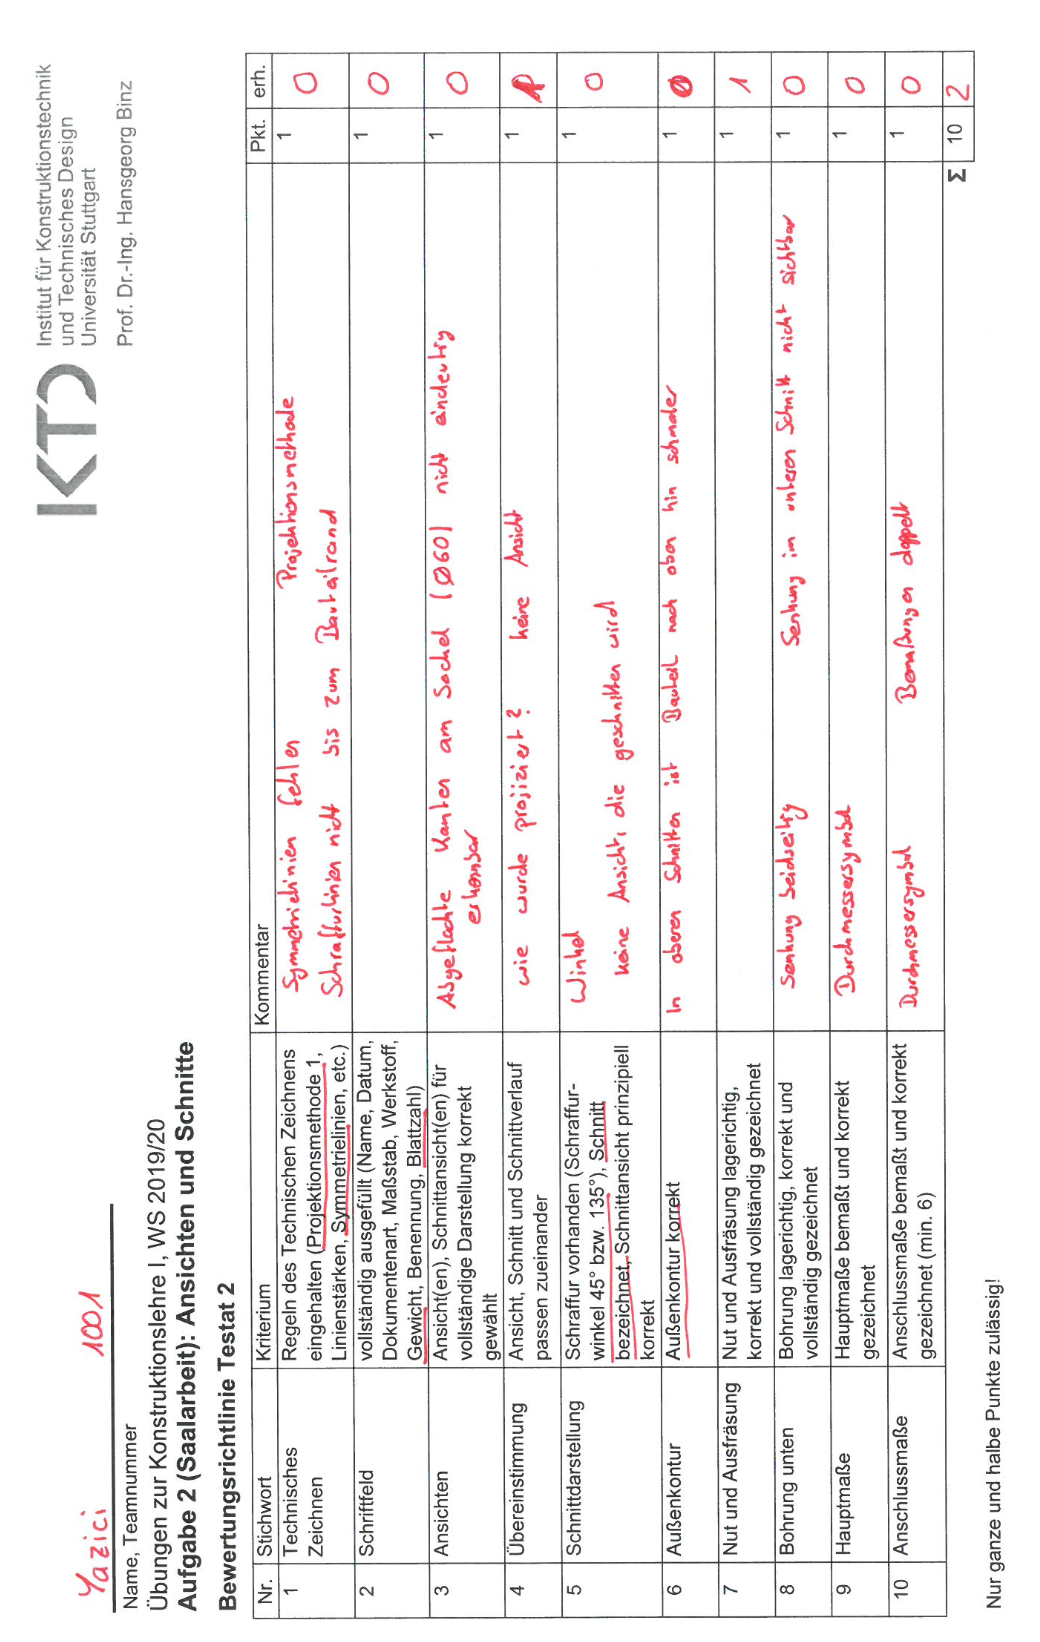 IKTD
Institut für Konstruktionstechnik
und Technisches Design
Universität Stuttgart
Prof. Dr.-Ing. Hansgeorg Binz
Yazici 1001
Name, Teamnummer
Übungen zur Konstruktionslehre I, WS 2019/20
Aufgabe 2 (Saalarbeit): Ansichten und Schnitte
Bewertungsrichtlinie Testat 2
Nr. Stichwort Kriterium Kommentar Pkt. erh.
1 Technisches Zeichnen
Regeln des Technischen Zeichnens
eingehalten (Projektionsmethode 1,
Linienstärken, Symmetrielinien, etc.)
Symmetrielinien fehlen Projektionsmethode
Schraffurlinien nicht bis zum Bauteilrand
1 0
2 Schriftfeld
vollständig ausgefüllt (Name, Datum,
Dokumentenart, Maßstab, Werkstoff,
Gewicht, Benennung, Blattzahl)
1 0
3 Ansichten
Ansicht(en), Schnittansicht(en) für
vollständige Darstellung korrekt
gewählt
Abgeflachte Kanten am Sockel (Ø60) nicht eindeutig
erkennbar
1 0
4 Übereinstimmung
Ansicht, Schnitt und Schnittverlauf
passen zueinander
wie wurde projiziert? keine Ansicht
1
5 Schnittdarstellung
Schraffur vorhanden (Schraffur-
winkel 45° bzw. 135°), Schnitt
bezeichnet, Schnittansicht prinzipiell
korrekt
Winkel
keine Ansicht, die geschnitten wird
1 0
6 Außenkontur
Außenkontur korrekt
In oberen Schnitten ist Bauteil nach oben hin schmaler
1 0
7 Nut und Ausfräsung
Nut und Ausfräsung lagerichtig,
korrekt und vollständig gezeichnet
1 1
8 Bohrung unten
Bohrung lagerichtig, korrekt und
vollständig gezeichnet
Senkung beidseitig Senkung im unteren Schnitt nicht sichtbar
1 0
9 Hauptmaße
Hauptmaße bemaßt und korrekt
gezeichnet
Durchmessersymbol
1 0
10 Anschlussmaße
Anschlussmaße bemaßt und korrekt
gezeichnet (min. 6)
Durchmessersymbol Bemaßungen doppelt
1 0
Σ 10 2
Nur ganze und halbe Punkte zulässig!